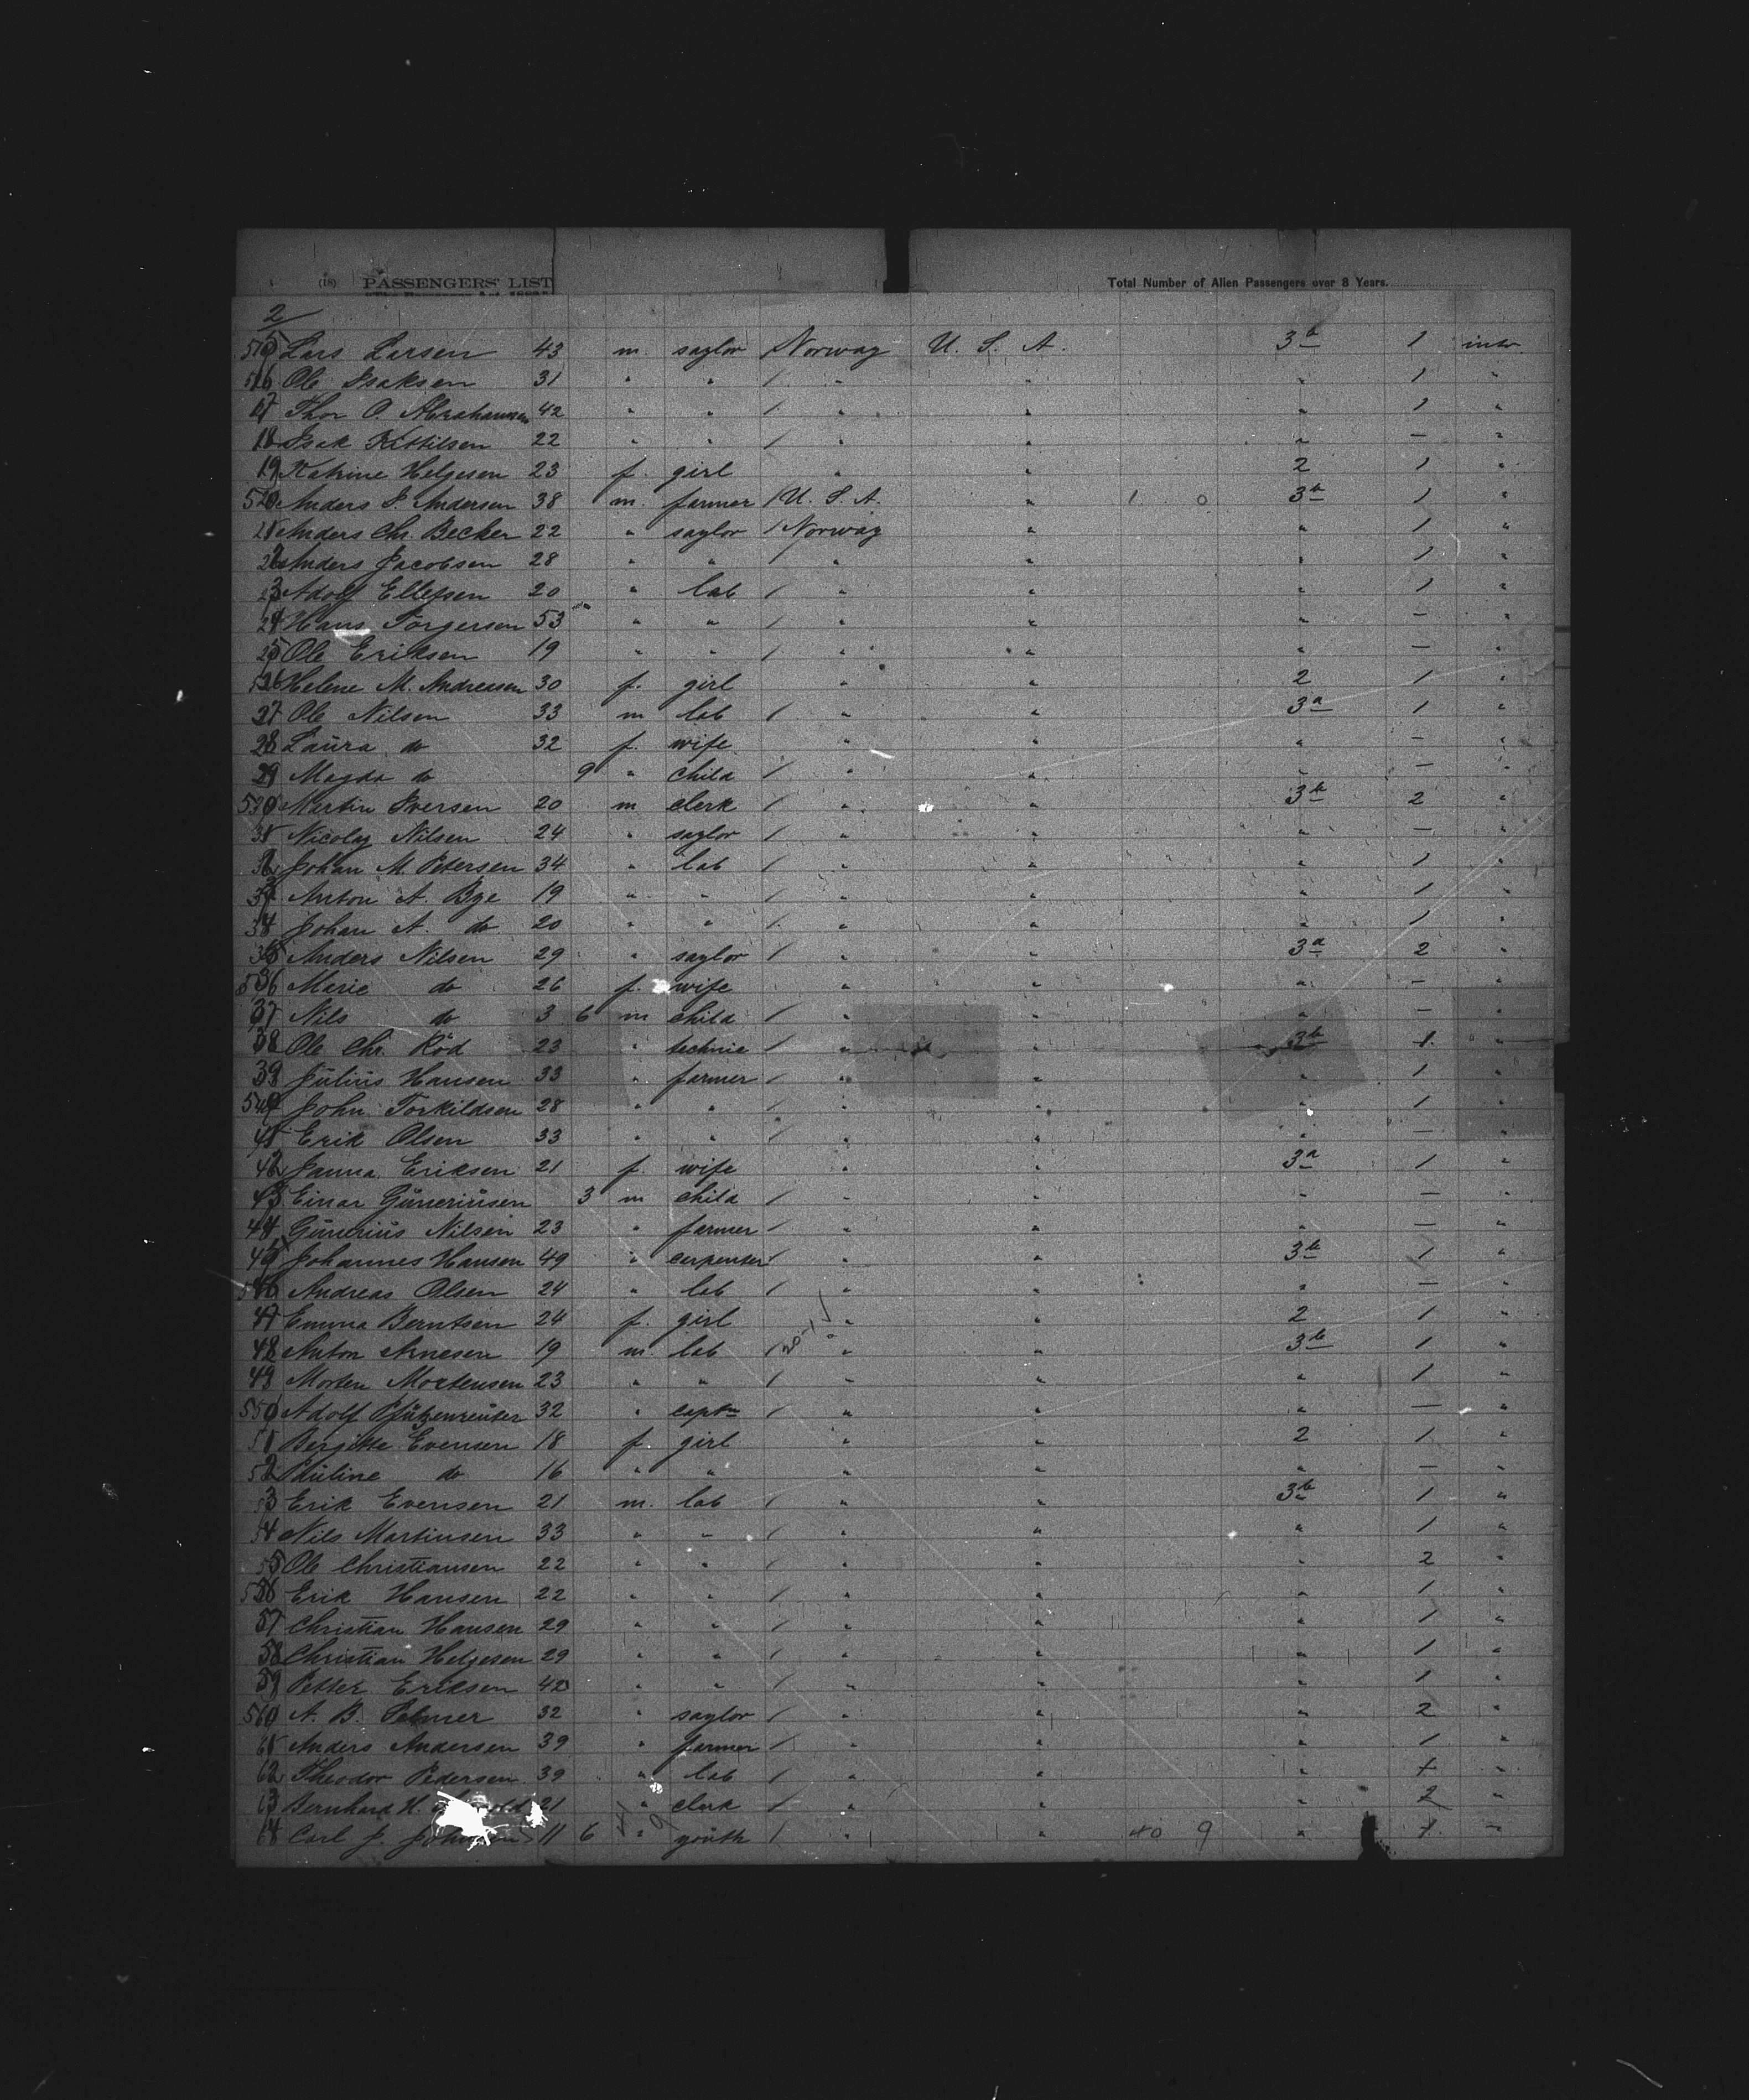 (18) PASSENGERS' LIST Total Number of Alien Passengers over 8 Years.
2/
515 Lars Larsen 43 m. saylor Norway U. S. A. 3b 1 intr.
516 Ole Isaksen 31 " " / " " " 1 "
17 Thor O. Abrahamsen 42 " " / " " " 1 "
18 Isak Kittilsen 22 " " / " " " — "
19 Katrine Helgesen 23 f. girl " " 2 1 "
520 Anders P. Andersen 38 m. farmer / U. S. A. " 1 0 3b 1 "
21 Anders Chr. Becker 22 " saylor / Norway " " 1 "
22 Anders Jacobsen 28 " " / " " " 1 "
23 Adolf Ellefsen 20 " lab / " " " 1 "
24 Hans Torgersen 53 " " / " " " — "
25 Ole Eriksen 19 " " / " " " — "
526 Helene M. Andreasen 30 f. girl " " 2 1 "
27 Ole Nilsen 33 m lab / " " 3a 1 "
28 Laura do 32 f. wife " " " — "
29 Magda do 9 " child / " " " — "
530 Martin Iversen 20 m clerk / " " 3b 2 "
31 Nicolay Nilsen 24 " saylor / " " " — "
32 Johan M. Petersen 34 " lab / " " " 1 "
33 Anton A. Bye 19 " " / " " " 1 "
34 Johan A. do 20 " " / " " " 1 "
35 Anders Nilsen 29 " saylor / " " 3a 2 "
536 Marie do 26 f. wife " " " — "
37 Nils do 3 6 m child / " " " — "
38 Ole Chr. Röd 23 " technic / " " 3b 1 "
39 Julius Hansen 33 " farmer / " " " 1 "
540 John Torkildsen 28 " " / " " " 1 "
41 Erik Olsen 33 " " / " " " — "
42 Janna Eriksen 21 f. wife " " 3a 1 "
43 Einar Guneriusen 3 m child / " " " — "
44 Gunerius Nilsen 23 " farmer / " " " — "
45 Johannes Hansen 49 " carpenter / " " 3b 1 "
546 Andreas Olsen 24 " lab / " " " — "
47 Emma Berntsen 24 f. girl " " 2 1 "
48 Anton Arnesen 19 m. lab / " " 3b 1 "
49 Morten Mortensen 23 " " / " " " 1 "
550 Adolf Pfützenreuter 32 " captn / " " " — "
51 Bergitte Evensen 18 f. girl " " 2 1 "
52 Pauline do 16 " " " " " — "
53 Erik Evensen 21 m. lab / " " 3b 1 "
54 Nils Martinsen 33 " " / " " " 1 "
55 Ole Christiansen 22 " " / " " " 2 "
556 Erik Hansen 22 " " / " " " 1 "
57 Christian Hansen 29 " " / " " " 1 "
58 Christian Helgesen 29 " " / " " " 1 "
59 Petter Eriksen 42 " " / " " " 1 "
560 A. B. 32 " saylor / " " " 2 "
61 Anders Andersen 39 " farmer / " " " 1 "
62 Theodor Pedersen 39 " lab / " " " 1 "
63 Bernhard H. 21 " clerk / " " " 2 "
64 Carl J. 11 6 " youth / " " 40 9 " 1 "